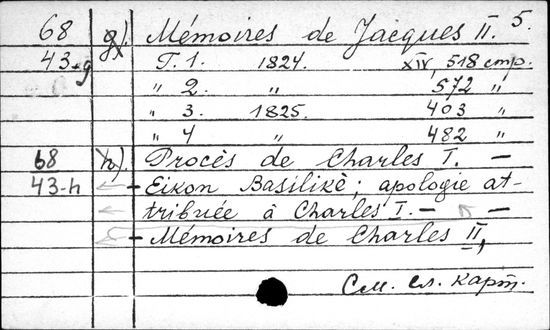 5.
68 g). Mémoires de Jacques II.
43-g T. 1. 1824. XIV, 518 стр.
" 2. " 572 "
" 3. 1825. 403 "
" 4 " 482 "
68 h). Procès de Charles I. —
43-h — Eikon Basilikè; apologie at-
tribuée à Charles I. —
— Mémoires de Charles II,
См. сл. карт.